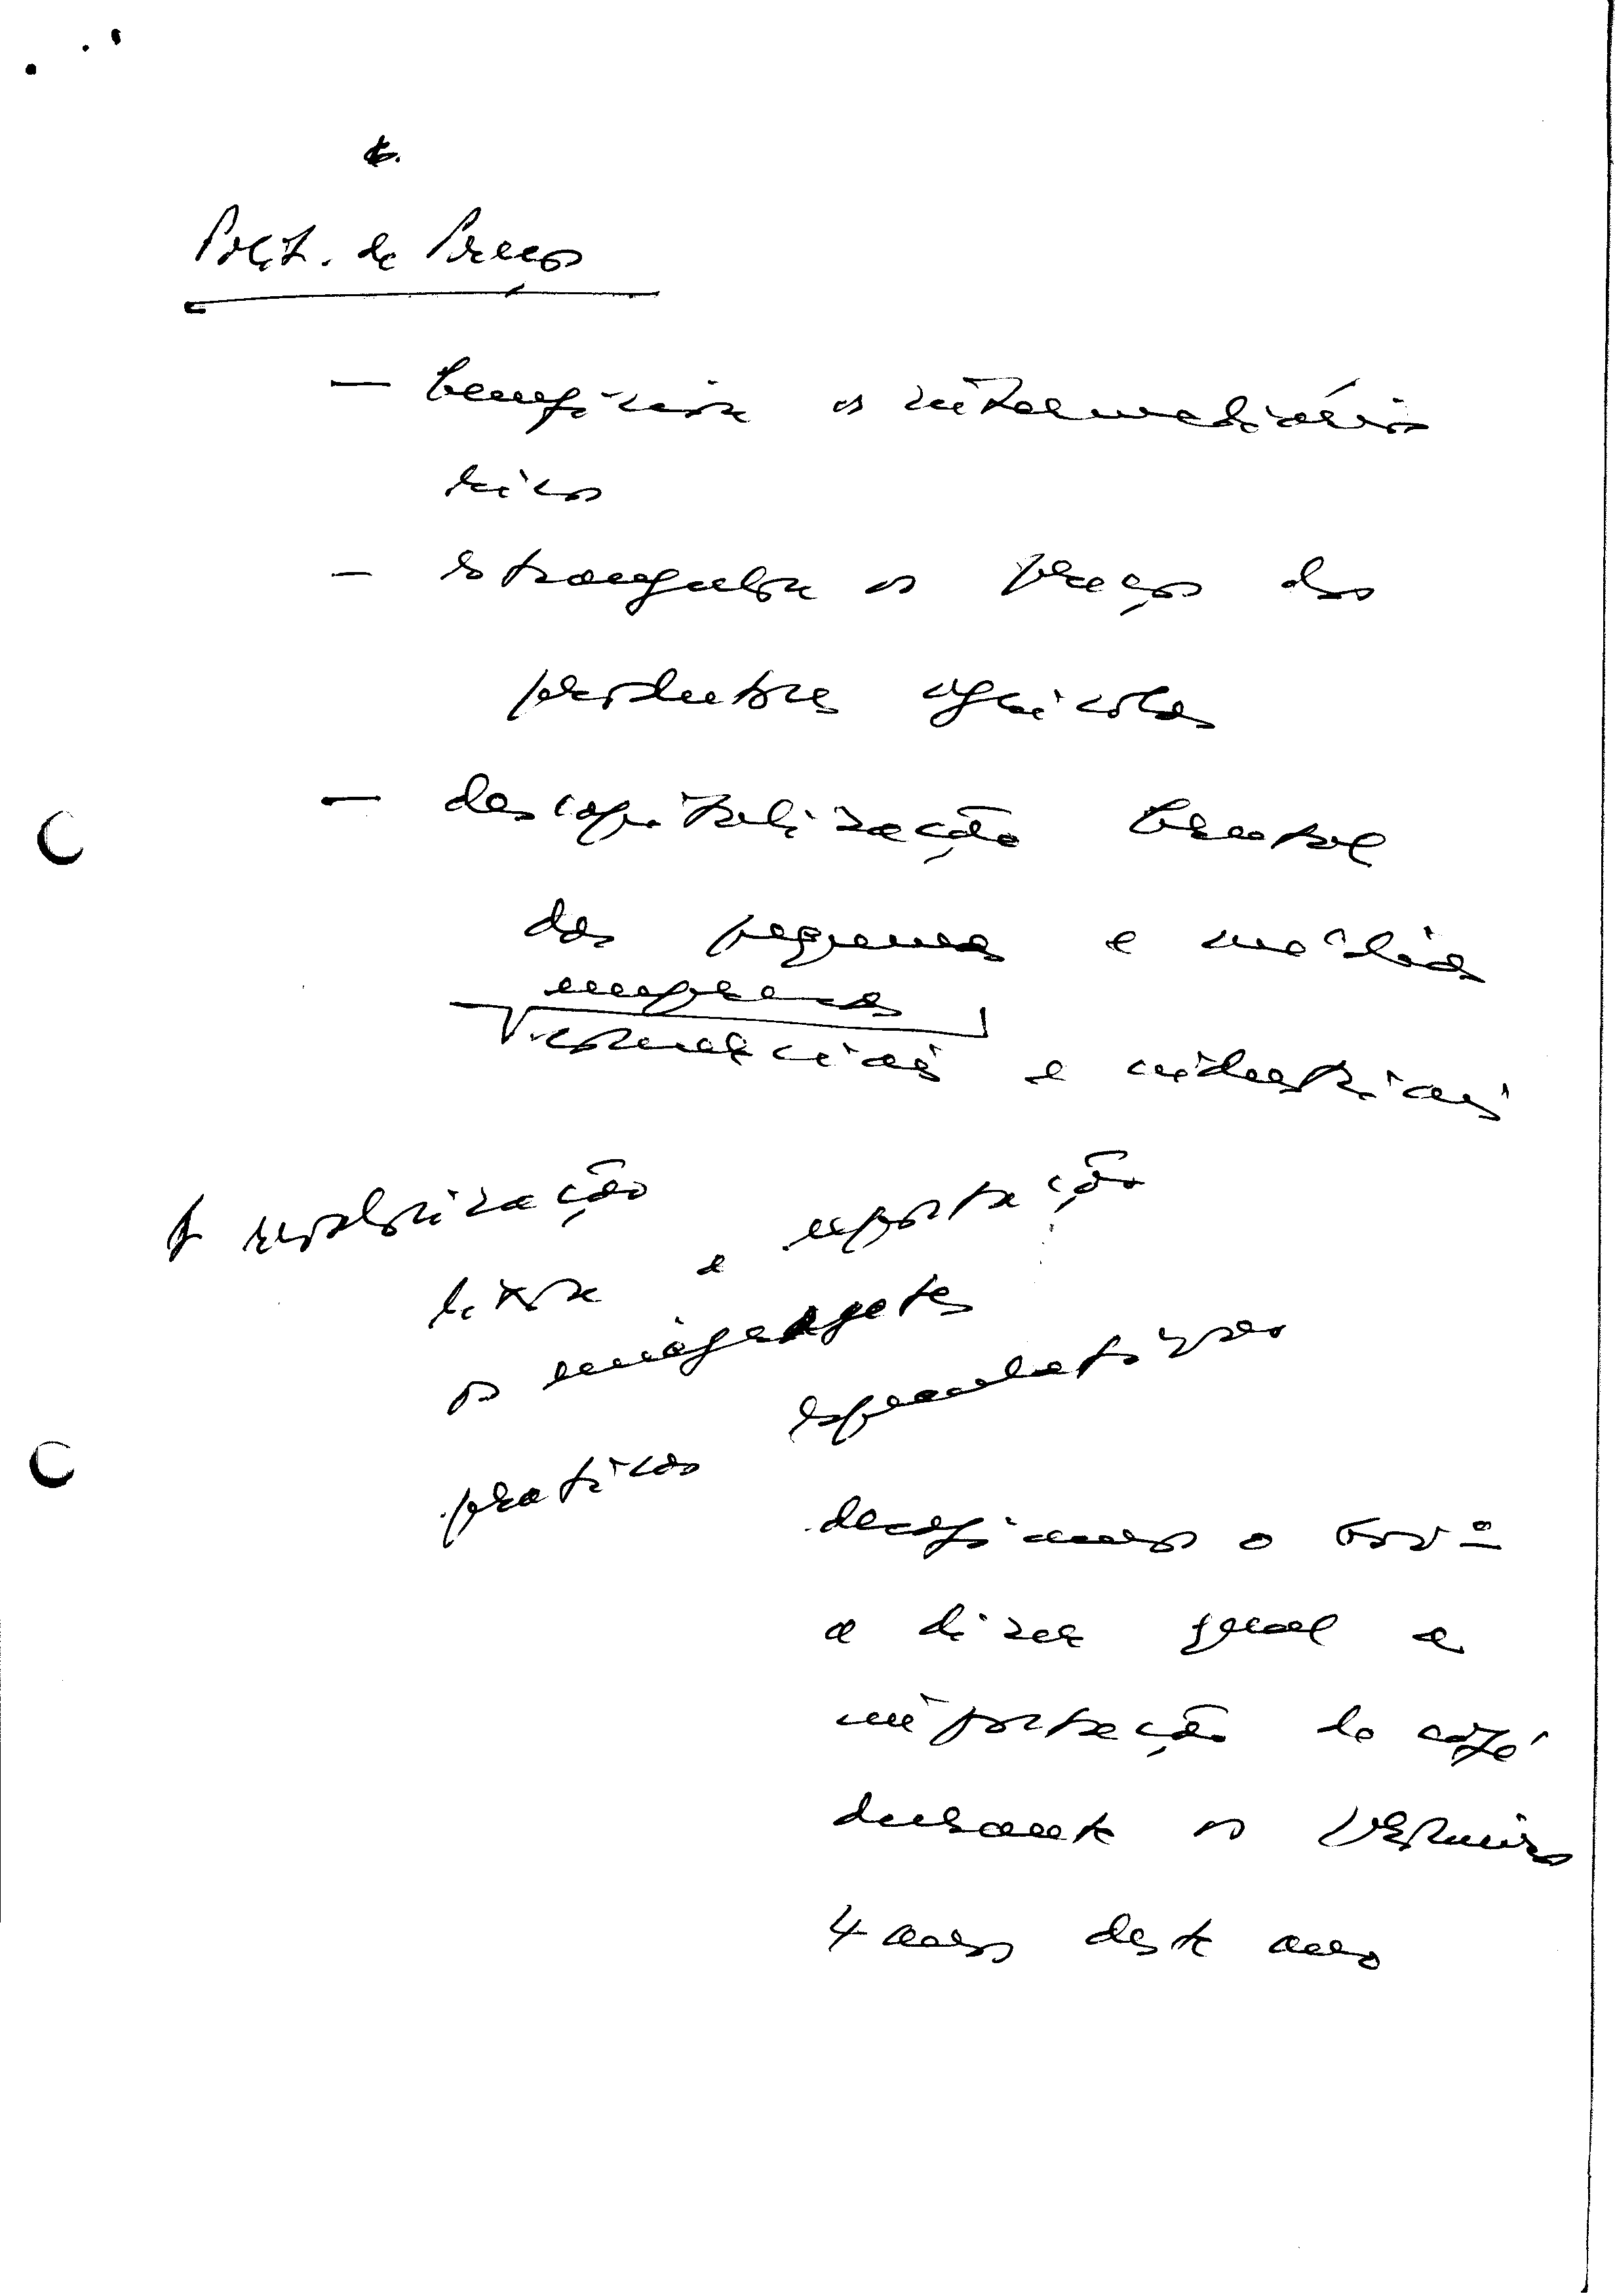 6.
Polít. de Preços
— beneficiar os intermediários
ricos
— estrangular os preços dos
produtores agrícolas
— descapitalização brutal
das pequenas e médias
empresas
comerciais e industriais
A exportação
e
os
práticas especulativas
desafiamos o Govº
a dizer qual a
importação de café
durante os primeiros
4 meses deste ano